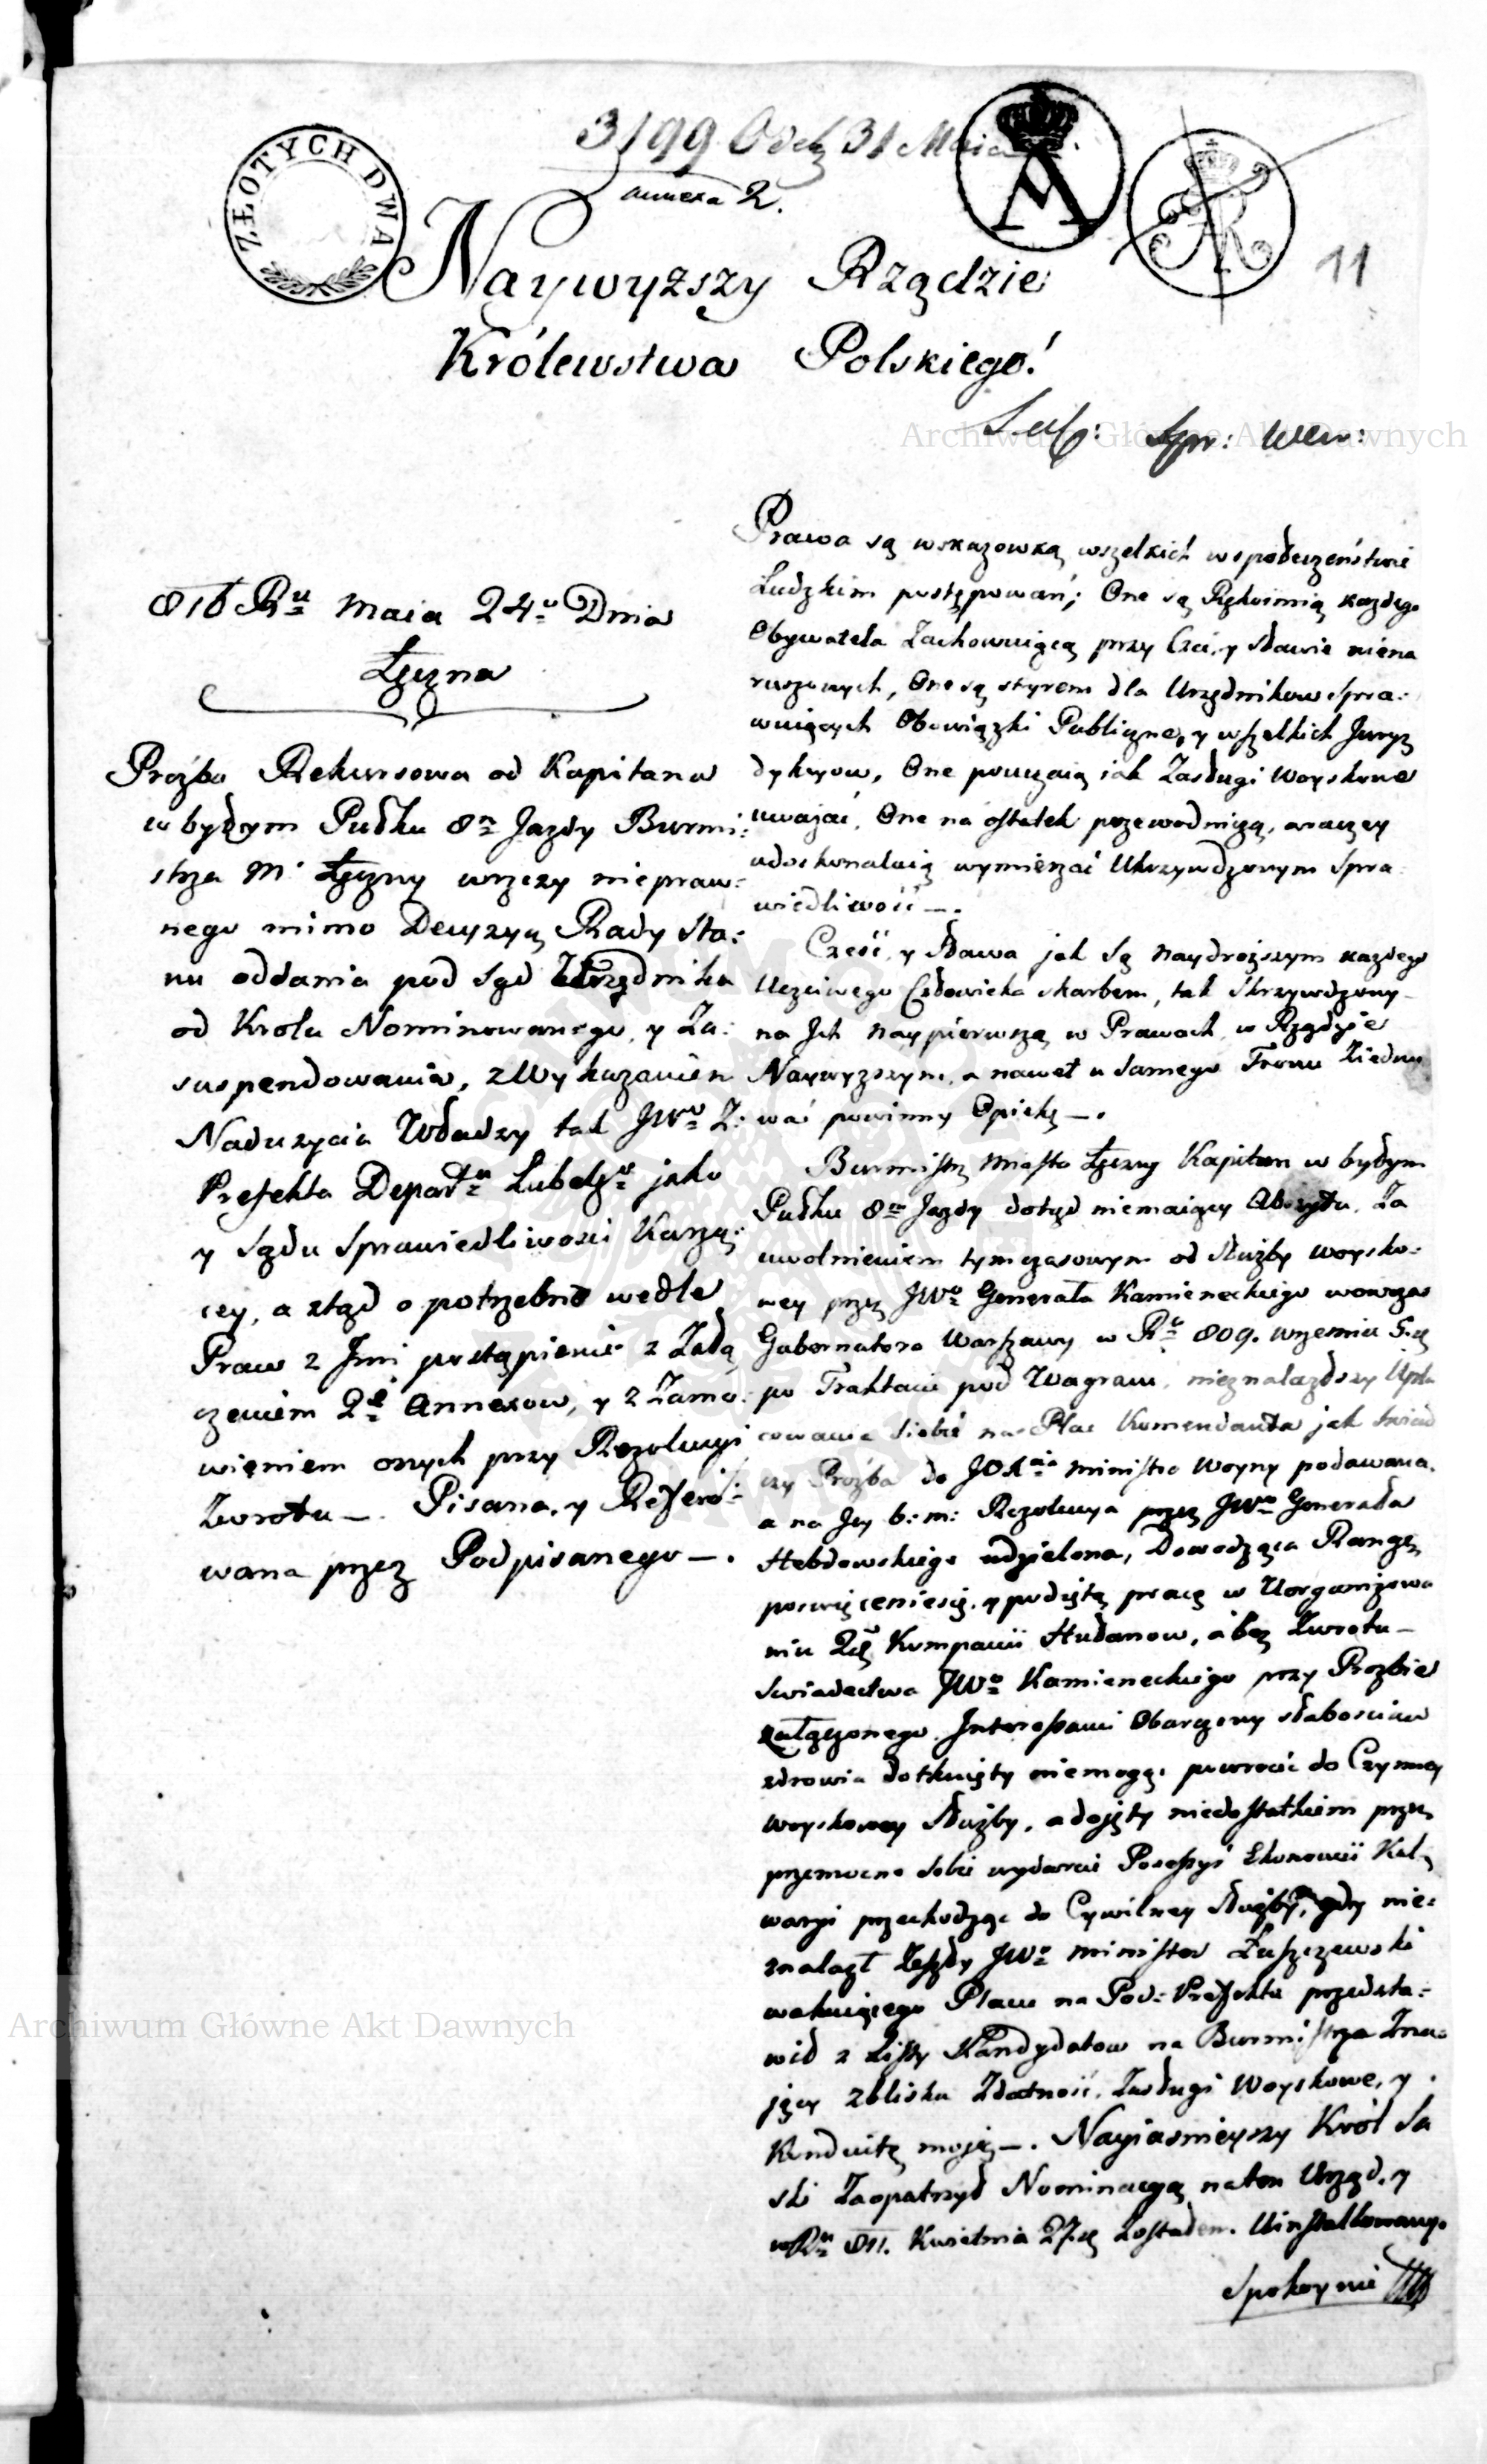 3199 Odeb 31 Maia
annexa 2.
ZŁOTYCH DWA
11
Naywyzszy Rządzie
Królewstwa Polskiego!
Spr: Wew:
816 Ru Maia 24o Dnia
Łęczna
Prozba Rekursowa od Kapitana
w byłym Pułku 8m Jazdy Burmi:
strza M. Łęczny wrzczy niepraw:
nego mimo Decyzyą Rady Sta:
nu oddania pod Sąd Urzędnika
od Krola Nominowanego, y Za:
suspendowania, z Wykazaniem
Naduzycia Władzy tak JWo Z:
Prefekta Departu Lubelgo jako
y Sądu Sprawiedliwosci Karzą:
cey, a ztąd o potrzebne wedle
Praw z Jmi postąpienie z Załą
czeniem 2ch Annexow, y z Zamo:
wieniem onych przy Rezolucyi
Zwrotu —. Pisana, y Refero:
wana przez Podpisanego —.
Prawa są wskazowką wszelkich w społeczeństwie
Ludzkim postępowań; One są Rękoimią kazdego
Obywatela Zachowuiącą przy Czci, y Sławie niena
ruszonych, One są styrem dla Urzędnikow Spra:
wuiących Obowiązki Publiczne, y wszelkich Juryz
dykcyow, One pouczaią iak Zasługi Woyskowe
uwazać, One na ostatek przewodniczą, oraczey
udoskonalaią wymierzać Ukrzywdzonym Spra:
wiedliwość —.
Cześć, y Sława jak są naydrozszym kazdego
Uczciwego Człowieka skarbem, tak Skrzywdzony
na Jch naypierwszą w Prawach, w Rządzie
Naywyzszym, a nawet u Samego Tronu Ziedny
wać powinny Opiekę —.
Burmistrz Miasta Łęczny Kapitan w byłym
Pułku 8m Jazdy dotąd niemaiący Abszytu, Za
uwolnieniem tymczasowym od Służby woysko:
wey przez JWo Generała Kamieneckiego wowczas
Gubernatora Warszawy w Ru 809. Wrzesnia 5.
po Traktacie pod Wagram, nieznalazłszy
cowania Siebie na Plac Komendanta jak Swiad
czy Prozba do Ministra Woyny podawana,
a na Jey b: m: Rezolucya przez JWo Generała
Hebdowskiego udzielona, Dowodząca Rangę,
poswięceniesię, y podiętą pracę w Uorganizowa
niu 2ch Kompanii Hułanow, a bez Zwrotu —
Swiadectwa JWo Kamieneckiego przy Prozbie
załączonego. Interessami Obarczony słabosciow
zdrowia dotknięty niemogąc powrocić do Czynney
Woyskowey Służby, a dojęty niedostatkiem przez
przemocne Sobie wydarcie Possessyi Ekonomii Kal
waryi przechodząc do Cywilney Służby, gdy nie:
znalazł Zeszły JWo Minister Łuszczewski
wakuiącego Placu na Pod: Prefekta przedsta:
wił z Listy Kandydatow na Burmistrza Zna:
jący zbliska Zdatność, Zasługi Woyskowe, y
Konduitę moję —. Nayiasnieyszy Król Sa
ski Zaopatrzył Nominacyą na ten Urząd, y
w Ru 811. Kwietnia 27. Zostałem Uinstallowany.
Spokoynie
Archiwum Główne Akt Dawnych
Archiwum Główne Akt Dawnych